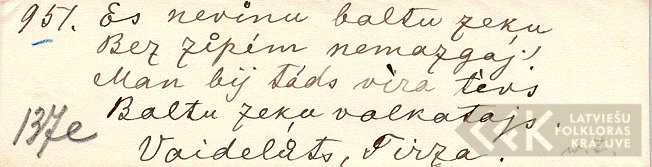 951. Es nevinu baltu zeķu
Bez zīpēm nemazgaj!
Man bij tāds vīra tēvs
Baltu zeķu valkatajs.
137e
Vaidelāts, Tirza.
LATVIEŠU
FOLKLORAS
KRĀTUVE